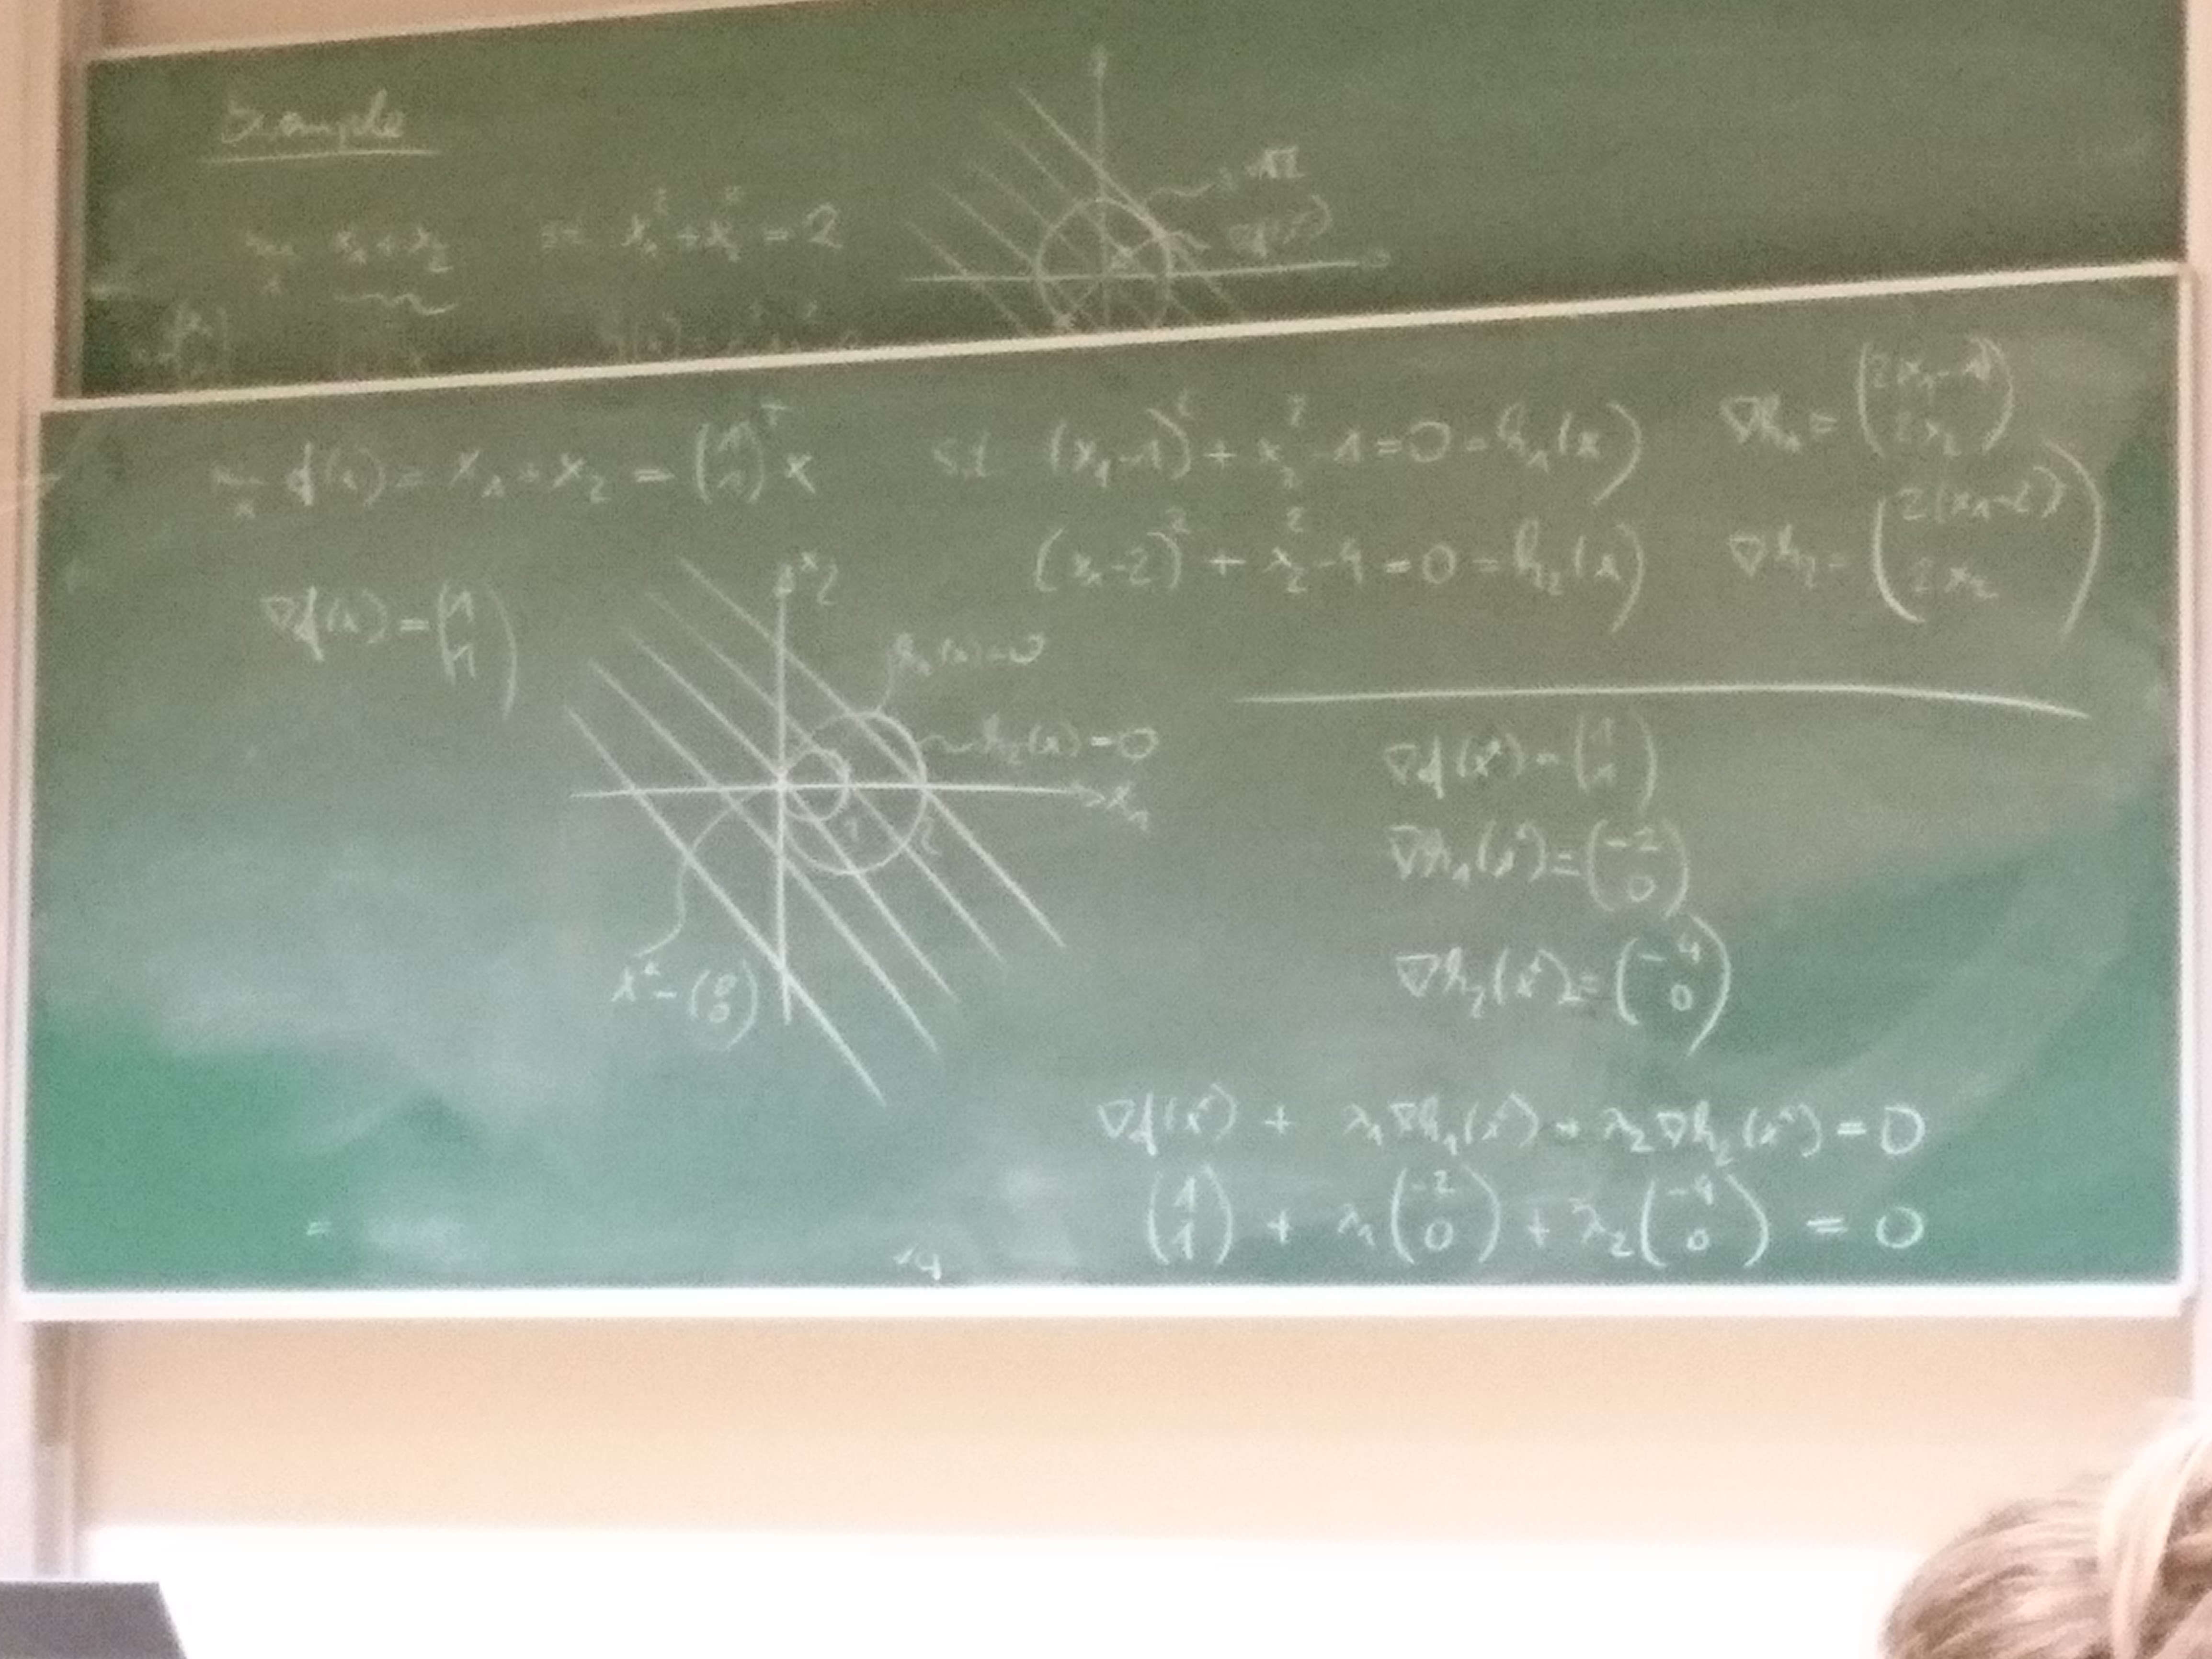 Example
min x x₁ + x₂ st x₁² + x₂² = 2
√2
∇f(x)
min x f(x) = x₁ + x₂ = (1 1)ᵀ x s.t. (x₁-1)² + x₂² - 1 = 0 = h₁(x) ∇h₁ = (2(x₁-1) 2x₂)
(x₁-2)² + x₂² - 4 = 0 = h₂(x) ∇h₂ = (2(x₁-2) 2x₂)
∇f(x) = (1 1)
x₂
h₁(x) = 0
h₂(x) = 0
x₁
1 2
x* = (0 0)
∇f(x*) = (1 1)
∇h₁(x*) = (-2 0)
∇h₂(x*) = (-4 0)
∇f(x*) + λ₁∇h₁(x*) + λ₂∇h₂(x*) = 0
(1 1) + λ₁(-2 0) + λ₂(-4 0) = 0